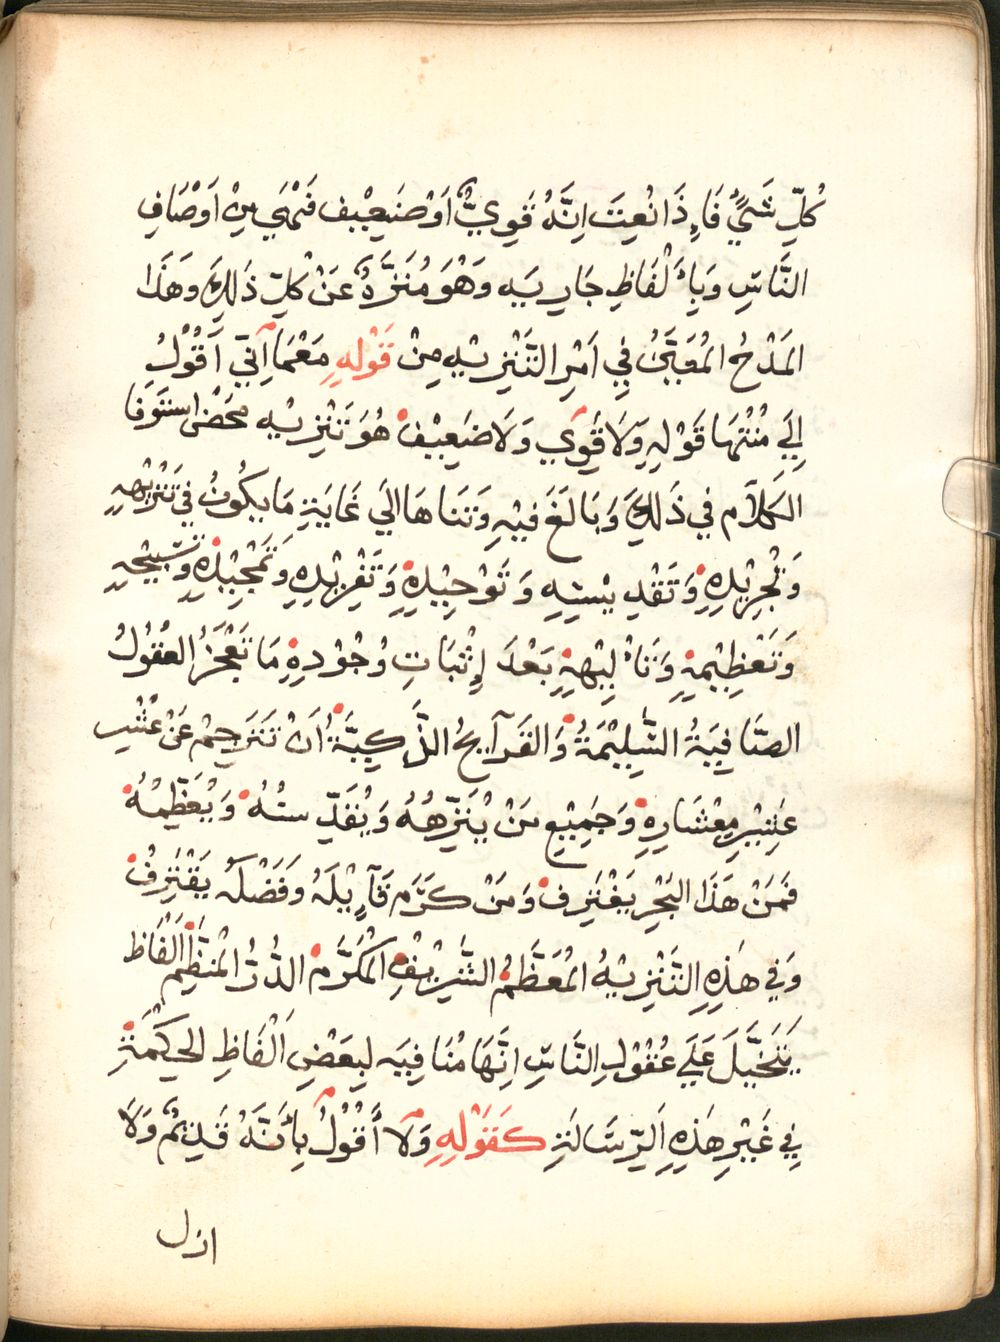 كُلِّ شَيٍّ فَاِذَا نُعِتَ اِنَّهُ قَوِيٌّ اَوْ ضَعِيْف فَهْيَ مِنْ اَوْصَافِ
النَّاسِ وَبِاَلْفَاظِ جَارِيَه وَهْوَ مُنَزَّهٌ عَنْ كُلِّ ذَلِكَ وَهَذَا
المَدْحُ الْمُعَبَّىٰ فِي اَمْرِ التَّنْزِيْهِ مِنْ قَوْلِهِ مَعْمَا اَنِّي اَقُوْلُ
اِلَي مُنْتَهَا قَوْلِهِ وَلَا قَوِي وَلَا ضَعِيْف هُوَ تَنْزِيْه مَحْض اسْتَوفَا
الكَلَام في ذَلِكَ وَبَالَغَ فيْهِ وَتَنَاهَا الَي غَايَةِ مَا يكُونُ في تَنْزِيْهِهِ
وَتَجْرِيْدِهِ وَتَقْدِيْسِهِ وَتَوْحِيْدِهِ وَتَفْرِيْدِهِ وَتَمْجِيْدِهِ وَتَسْبِيْحِهِ
وَتَعْظِيْمِهِ وَتَأْلِيْهِهِ بَعْدَ اِثْبَاتِ وُجُوْدِهِ مَا تَعْجَزُ العُقُولُ
الصَّافِيَةُ السَّلِيْمَةُ وَالقَرآيحُ الذَّكِيَّةُ اَنْ تَتَرجِمْ عَنْ عُشْرِ
عَشِيْرِ مِعْشَارِهِ وَجَمِيْعِ مَنْ يُنَزِّهُهُ وَيُقَدِّسُهُ وَيُعَظِّمُهُ
فَمَنْ هَذَا البَحْرِ يَغْتَرِف وَمَنْ كَرَّم قَآيْلَهُ وَفَضْلَهُ يَقْتَرِفْ
وَفي هَذِهِ التَّنْزِيْهُ الْمُعَظَّمُ الشَّرِيْفِ الْمُكَرَّم الدُّرُّ الْمُنَظَّمُ اَلْفَاظ
يَتَخَيَّلَ عَلَي عُقُوْلِ النَّاسِ اِنَّهَا مُنَافِيَه لِبَعْضِ اَلْفَاظِ الحِكْمَةِ
فِي غَيْرِ هَذِهِ الرِّسَالَةِ كَقَوْلِهِ وَلَا اَقُوْلُ بِأَنَّهُ قَدِيْمٌ وَلَا
ازل